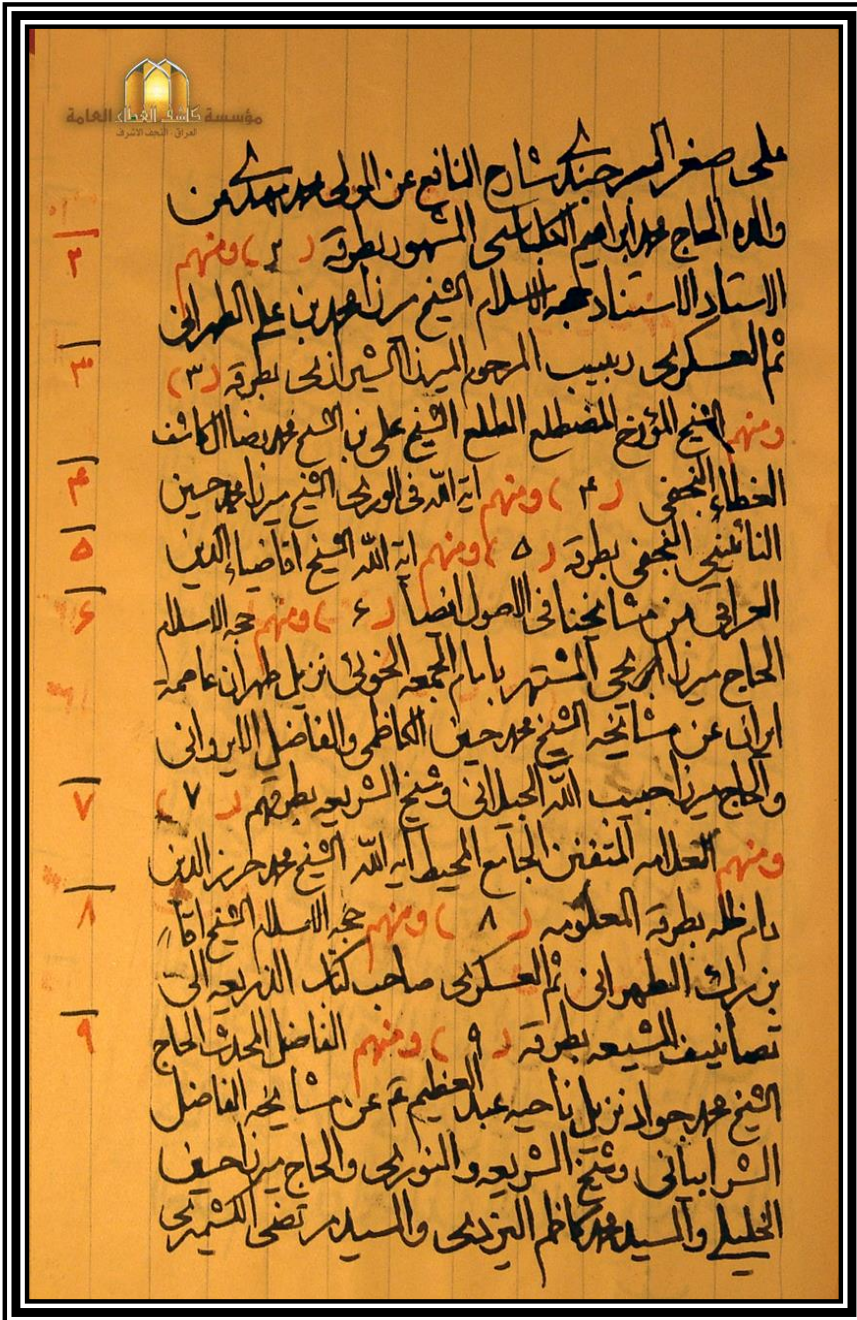 مؤسسة كاشف الغطاء العامة
العراق - النجف الاشرف
على اصغر شارح النافع عن المولى محمد مهدى عن
والده الحاج محمد ابراهيم الكلباسى المشهور بطرقه (٢) ومنهم
٢
الاستاد الاستناد حجه الاسلام الشيخ مرزا محمد بن على الطهرانى
ثم العسكرى ربيب المرحوم الميرزا الشيرازى بطرقه (٣)
٣
ومنهم الشيخ المؤرخ المضطلع المطلع الشيخ على بن الشيخ محمد رضا ال كاشف
الغطاء النجفى (۴) ومنهم اية الله فى الورى الشيخ ميرزا محمد حسين
۴
النائينى النجفى بطرقه (۵) ومنهم اية الله الشيخ اقا ضياء الدين
۵
العراقى من مشايخنا فى الاصول ايضا (۶) ومنهم حجه الاسلام
۶
الحاج ميرزا يحيى المشتهر بامام الجمعه الخوئى نزيل طهران عاصمة
ايران عن مشايخه الشيخ محمد حسين الكاظمى والفاضل الايروانى
والحاج ميرزا حبيب الله الجيلانى وشيخ الشريعه بطرقهم (٧)
٧
ومنهم العلامه المتفنن الجامع المحيط ايه الله الشيخ محمد حرز الدين
دام ظله بطرقه المعلومه (٨) ومنهم حجه الاسلام الشيخ اقا
٨
بزرك الطهرانى ثم العسكرى صاحب كتاب الذريعه الى
تصانيف الشيعه بطرقه (٩) ومنهم الفاضل المحدث الحاج
٩
الشيخ محمد جواد نزيل ناحيه عبد العظيم ع عن مشايخه الفاضل
الشرابيانى وشيخ الشريعه والنورى والحاج ميرزا حسين
الخليلى والسيد محمد كاظم اليزدى والسيد مرتضى الكشميرى